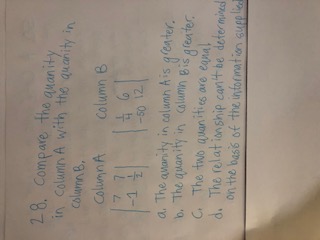 28. Compare the quanity
in Column A with the quanity in
column B.
Column A Column B
| 7 7 | | 1/4 6 |
| -1 1/2 | | -50 12 |
a. The quanity in column A is greater.
b. The quanity in column B is greater.
C. The two quanities are equal
d. The relationship can't be determined
on the basis of the information supplied